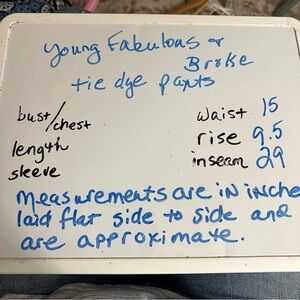 Young Fabulous &
Broke
tie dye pants
bust/chest
length
sleeve
waist 15
rise 9.5
inseam 29
Measurements are in inche
laid flat side to side and
are approximate.